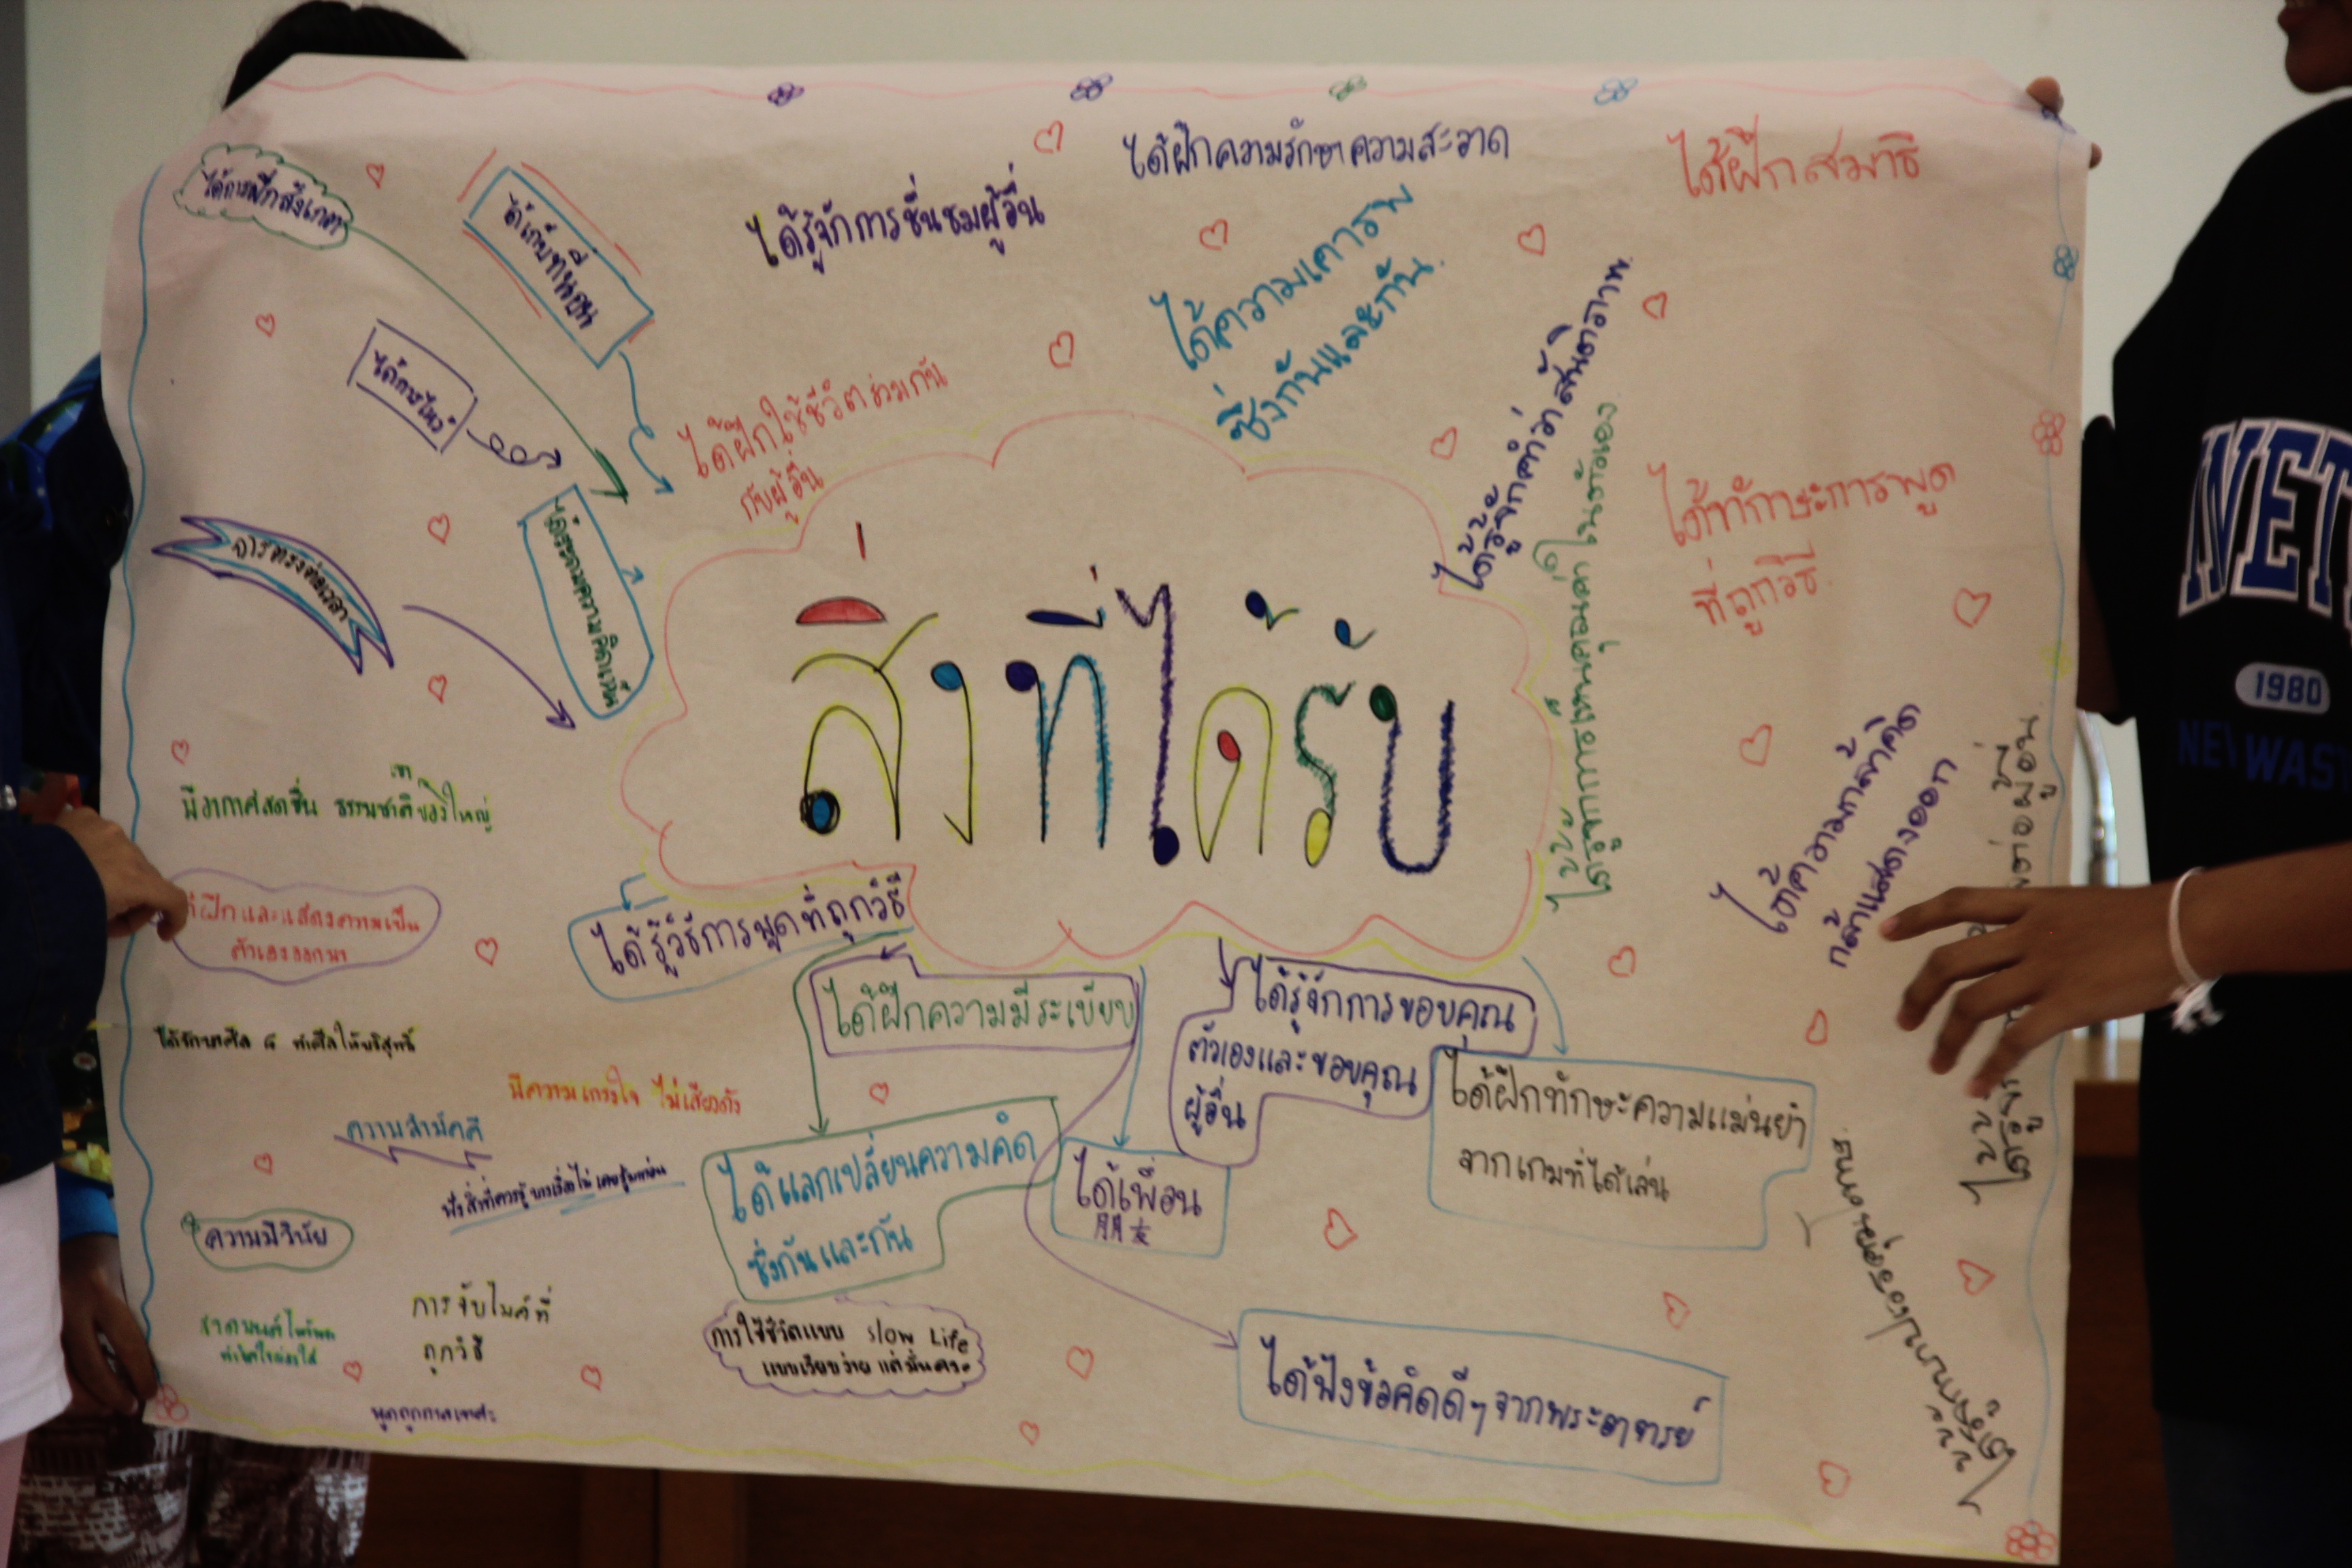 ได้ฝึกความรักษาความสะอาด
ได้ฝึกสมาธิ
ได้การฝึกสังเกตุ
ได้รู้จักการชื่นชมผู้อื่น
ได้ความเคารพ
ซึ่งกันและกัน.
ได้การไหว้
ได้ฝึกใช้ชีวิตร่วมกัน
กับผู้อื่น
ได้รู้จักคำว่าสันติภาพ.
ได้รู้จักการเห็นคุณค่าในตัวเอง.
ได้ทักษะการพูด
ที่ถูกวิธี.
ได้ระดมความคิดเห็น
การตรงต่อเวลา
สิ่งที่ได้รับ
NET
1980
มีอากาศสดชื่น ธรรมชาติของเขาใหญ่
ได้ความกล้าคิด
กล้าแสดงออก
ต่อผู้อื่น.
ฝึกและแสดงความเป็น
ตัวเองออกมา
ได้รู้วิธีการพูดที่ถูกวิธี
ได้ฝึกความมีระเบียบ
ได้รู้จักการขอบคุณ
ตัวเองและขอบคุณ
ผู้อื่น
ได้รักษาศีล 5 ทำศีลให้บริสุทธิ์
มีความเกรงใจ ไม่เสียงดัง
ความสามัคคี
ได้ฝึกทักษะความแม่นยำ
จากเกมที่ได้เล่น
ได้แลกเปลี่ยนความคิด
ซึ่งกันและกัน
ได้เพื่อน
朋友
ความมีวินัย
การจับไมค์ที่
ถูกวิธี
การใช้ชีวิตแบบ slow Life
พูดถูกกาลเทศะ
ได้ฟังข้อคิดดีๆจากพระอาจารย์